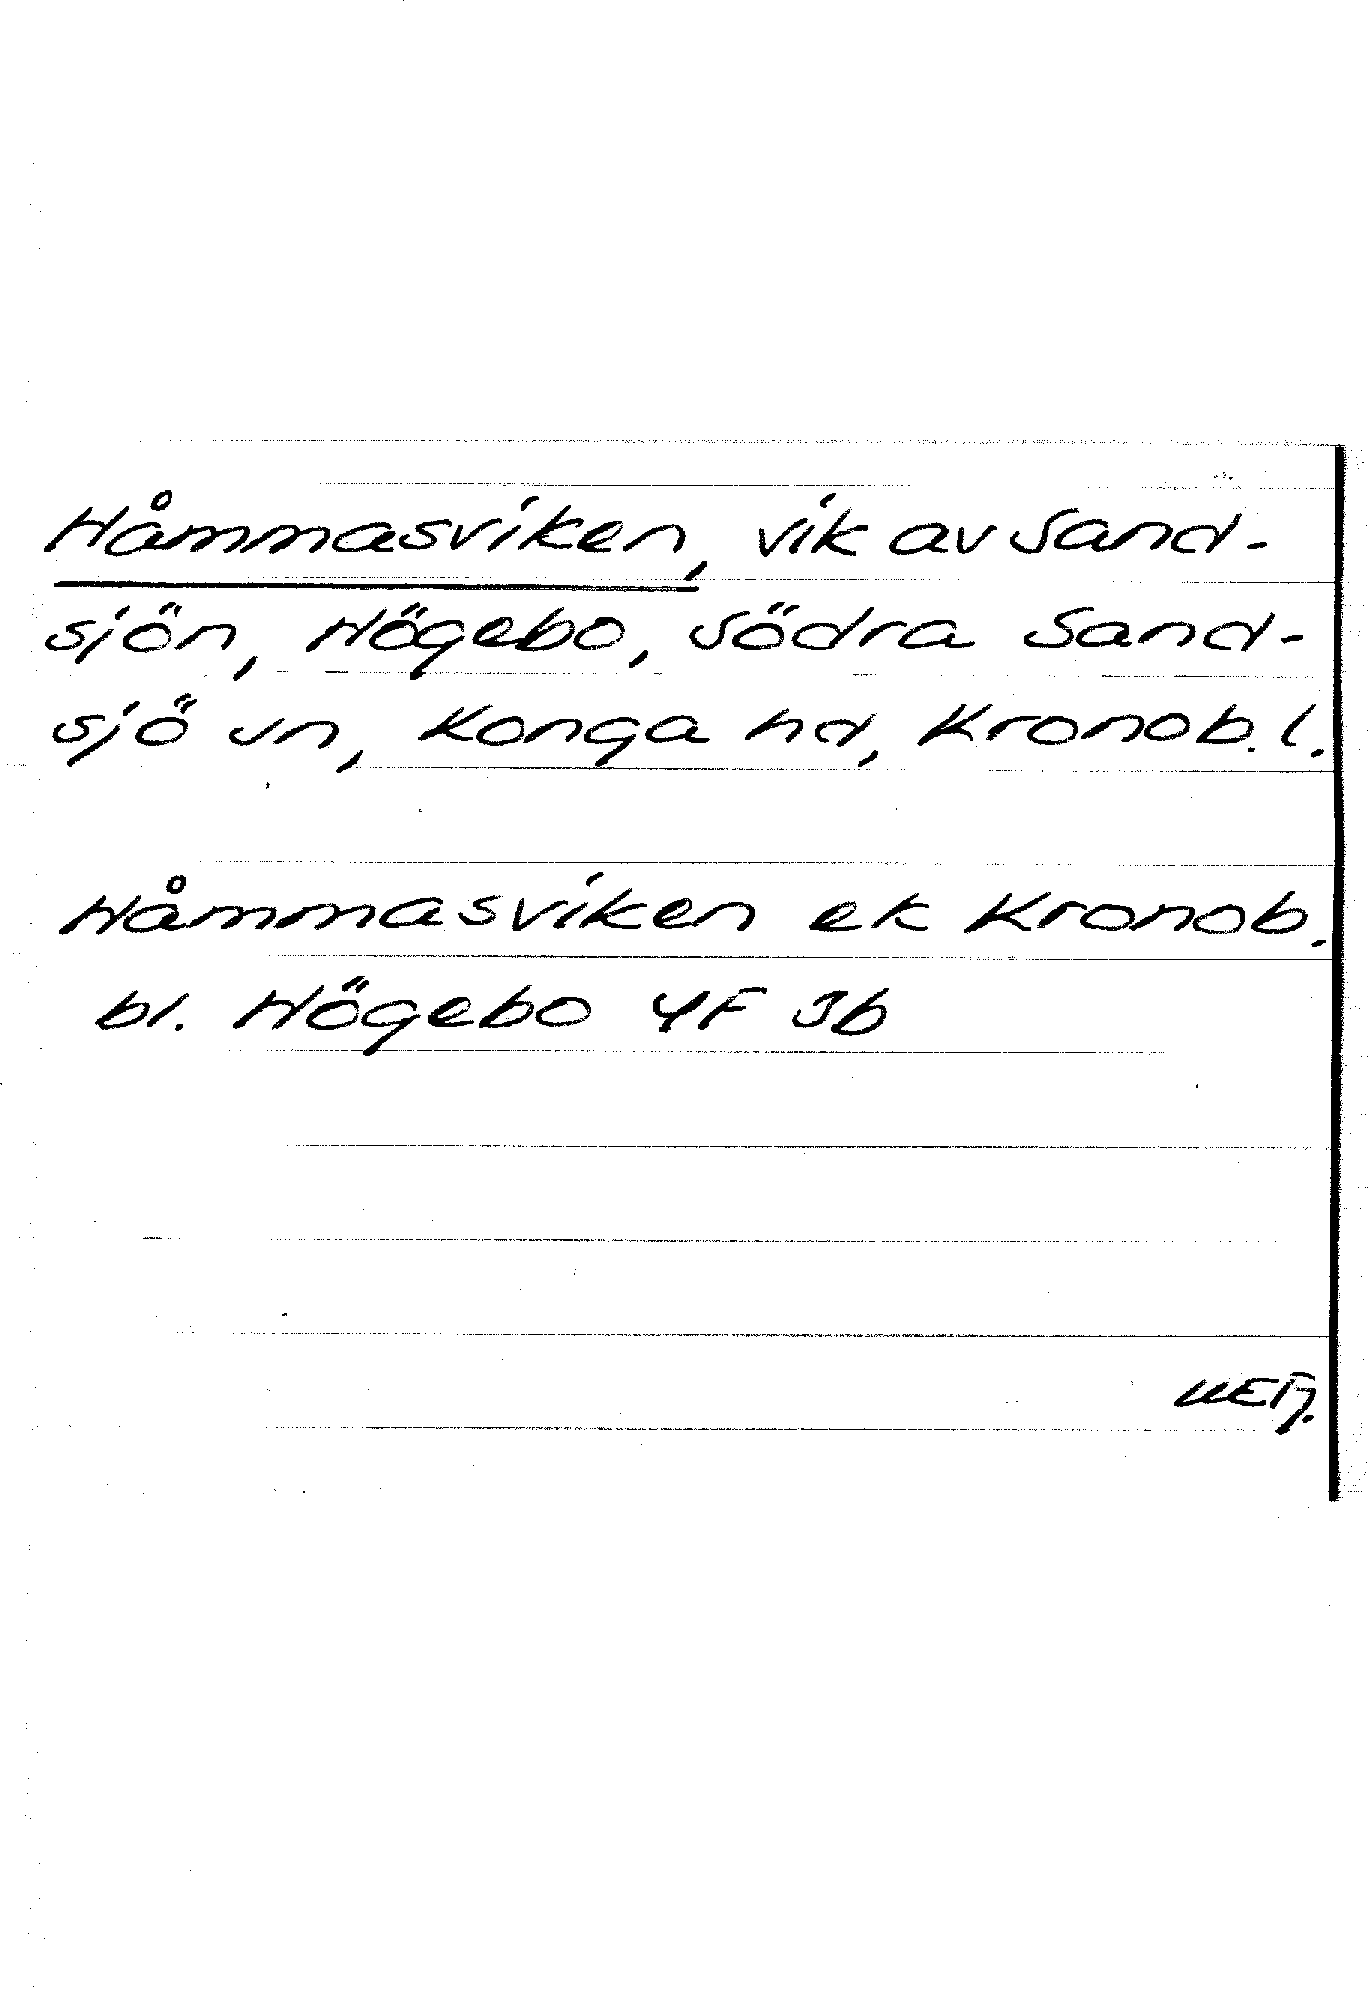 Håmmasviken, vik av Sand-
sjön, Högebo, Södra Sand-
sjö sn, Konga hd, Kronob. l.
Håmmasviken ek Kronob.
bl. Högebo 4F 3b